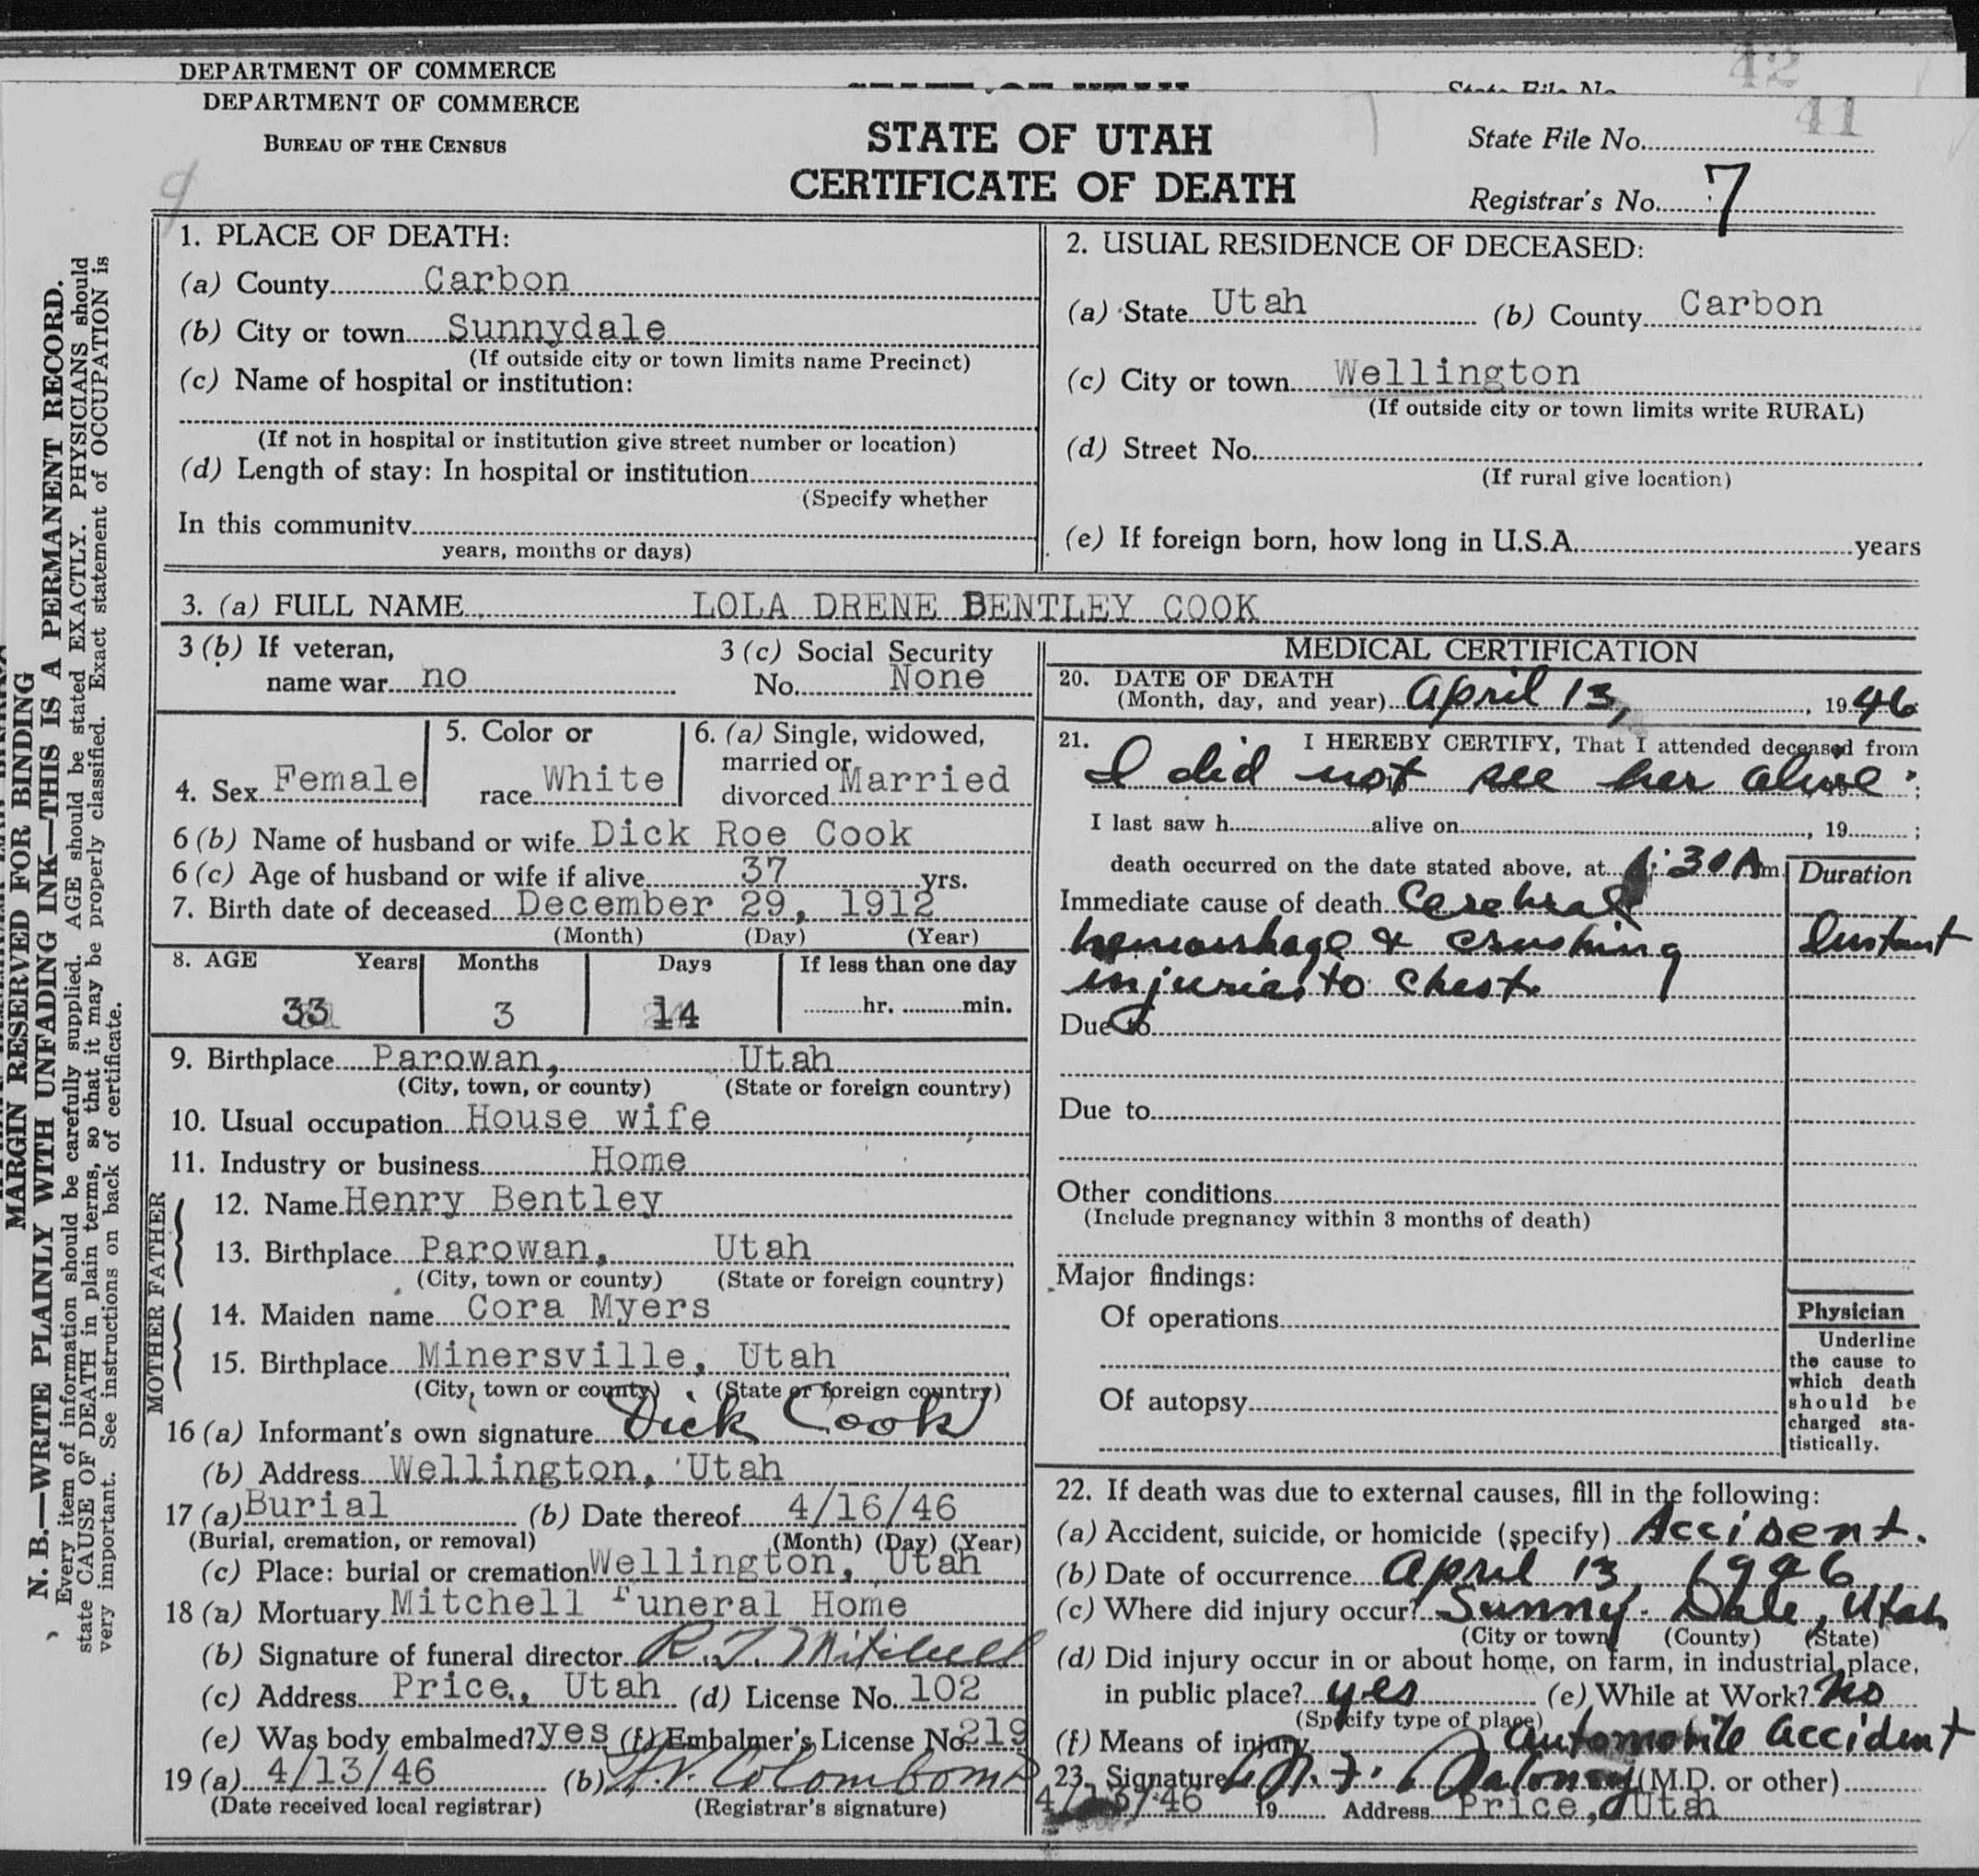 DEPARTMENT OF COMMERCE
42
DEPARTMENT OF COMMERCE
BUREAU OF THE CENSUS
STATE OF UTAH
CERTIFICATE OF DEATH
State File No. 41
Registrar's No. 7
MARGIN RESERVED FOR BINDING
N. B.—WRITE PLAINLY WITH UNFADING INK—THIS IS A PERMANENT RECORD.
Every item of information should be carefully supplied. AGE should be stated EXACTLY. PHYSICIANS should
state CAUSE OF DEATH in plain terms, so that it may be properly classified. Exact statement of OCCUPATION is
very important. See instructions on back of certificate.
1. PLACE OF DEATH:
(a) County Carbon
(b) City or town Sunnydale
(If outside city or town limits name Precinct)
(c) Name of hospital or institution:
(If not in hospital or institution give street number or location)
(d) Length of stay: In hospital or institution
(Specify whether
In this community
years, months or days)
2. USUAL RESIDENCE OF DECEASED:
(a) State Utah (b) County Carbon
(c) City or town Wellington
(If outside city or town limits write RURAL)
(d) Street No.
(If rural give location)
(e) If foreign born, how long in U.S.A. years
3. (a) FULL NAME LOLA DRENE BENTLEY COOK
3 (b) If veteran,
name war no
3 (c) Social Security
No. None
4. Sex Female
5. Color or
race White
6. (a) Single, widowed,
married or
divorced Married
6 (b) Name of husband or wife Dick Roe Cook
6 (c) Age of husband or wife if alive 37 yrs.
7. Birth date of deceased December 29, 1912
(Month) (Day) (Year)
8. AGE Years Months Days If less than one day
33 3 14 hr. min.
9. Birthplace Parowan, Utah
(City, town, or county) (State or foreign country)
10. Usual occupation House wife
11. Industry or business Home
FATHER
12. Name Henry Bentley
13. Birthplace Parowan, Utah
(City, town or county) (State or foreign country)
MOTHER
14. Maiden name Cora Myers
15. Birthplace Minersville, Utah
(City, town or county) (State or foreign country)
16 (a) Informant's own signature Dick Cook
(b) Address Wellington, Utah
17 (a) Burial (b) Date thereof 4/16/46
(Burial, cremation, or removal) (Month) (Day) (Year)
(c) Place: burial or cremation Wellington, Utah
18 (a) Mortuary Mitchell Funeral Home
(b) Signature of funeral director R. T. Mitchell
(c) Address Price, Utah (d) License No. 102
(e) Was body embalmed? yes (f) Embalmer's License No. 219
19 (a) 4/13/46 (b) Colombo MD
(Date received local registrar) (Registrar's signature)
MEDICAL CERTIFICATION
20. DATE OF DEATH
(Month, day, and year) April 13, 1946
21. I HEREBY CERTIFY, That I attended deceased from
I did not see her alive ;
I last saw h alive on , 19 ;
death occurred on the date stated above, at :30 A m.
Duration
Immediate cause of death Cerebral
hemorrhage & crushing Instant
injuries to chest.
Due to
Due to
Other conditions
(Include pregnancy within 3 months of death)
Major findings:
Of operations
Of autopsy
Physician
Underline
the cause to
which death
should be
charged sta-
tistically.
22. If death was due to external causes, fill in the following:
(a) Accident, suicide, or homicide (specify) Accident.
(b) Date of occurrence April 13, 1946
(c) Where did injury occur? Sunny-Dale, Utah
(City or town) (County) (State)
(d) Did injury occur in or about home, on farm, in industrial place,
in public place? yes (e) While at Work? No
(Specify type of place)
(f) Means of injury automobile accident
23. Signature (M.D. or other)
46 19 Address Price, Utah